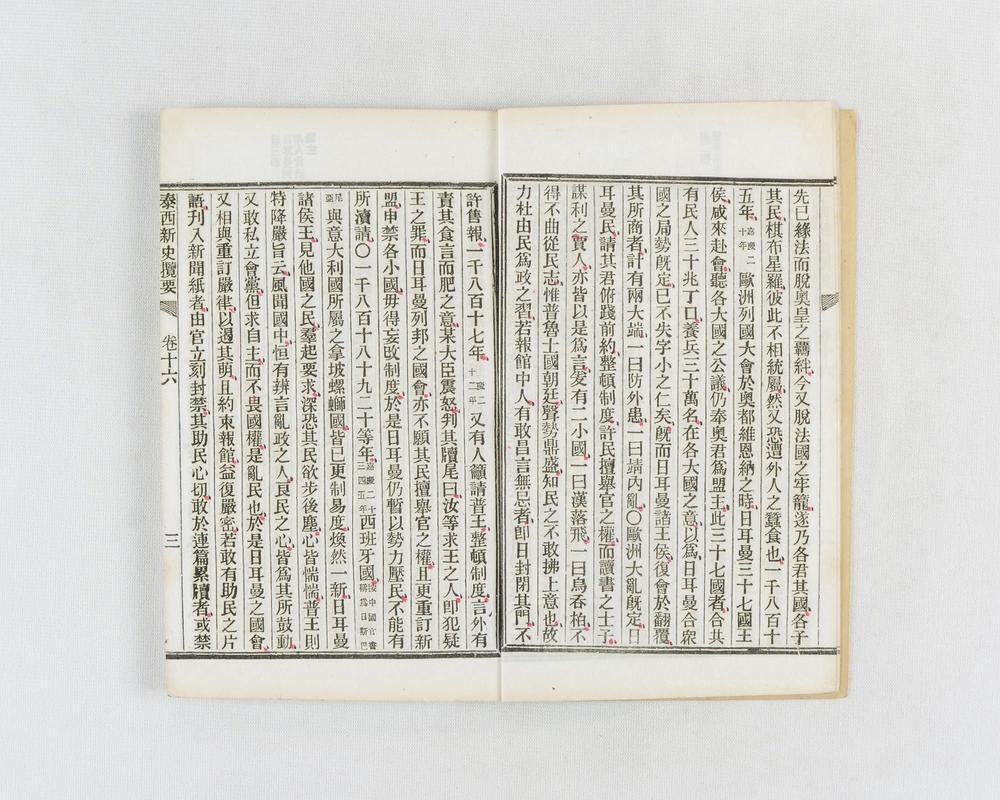 先已緣法而脫奧皇之羈絆今又脫法國之牢籠遂乃各君其國各子
其民棋布星羅彼此不相統屬然又恐遭外人之蠶食也一千八百十
五年嘉慶二十年歐洲列國大會於奧都維恩納之時日耳曼三十七國王
侯咸來赴會聽各大國之公議仍奉奧君爲盟主此三十七國者合共
有民人三十兆丁口養兵三十萬名在各大國之意以爲日耳曼合衆
國之局勢旣定已不失字小之仁矣旣而日耳曼諸王侯復會於翻覆
其所商者計有兩大端一曰防外患一曰靖內亂〇歐洲大亂旣定日
耳曼民請其君俯踐前約整頓制度許民擅舉官之權而讀書之士于
謀利之賈人亦皆以是爲言爰有二小國一曰漢落飛一曰烏吞柏不
得不曲從民志惟普魯士國朝廷聲勢鼎盛知民之不敢拂上意也故
力杜由民爲政之習若報館中人有敢昌言無忌者卽日封閉其門不
許售報一千八百十七年嘉慶二十二年又有人籲請普王整頓制度言外有
責其食言而肥之意某大臣震怒判其牘尾曰汝等求王之人卽犯疑
王之罪而日耳曼列邦之國會亦不願其民擅舉官之權且更重訂新
盟申禁各小國毋得妄改制度於是日耳曼仍暫以勢力壓民不能有
所瀆請〇一千八百十八十九二十等年嘉慶二十三四五年西班牙國按中國官書稱爲日斯巴
尼亞與意大利國所屬之拿坡螺螄國皆已更制易度煥然一新日耳曼
諸侯王見他國之民羣起要求深恐其民欲步後塵心皆惴惴普王則
特降嚴旨云風聞國中恒有辨言亂政之人良民之心皆爲其所鼓動
又敢私立會黨但求自主而不畏國權是亂民也於是日耳曼之國會
又相與重訂嚴律以遏其萌且約束報館益復嚴密若敢有助民之片
語刋入新聞紙者由官立刻封禁其助民心切敢於連篇累牘者或禁
泰西新史攬要 卷十六 三